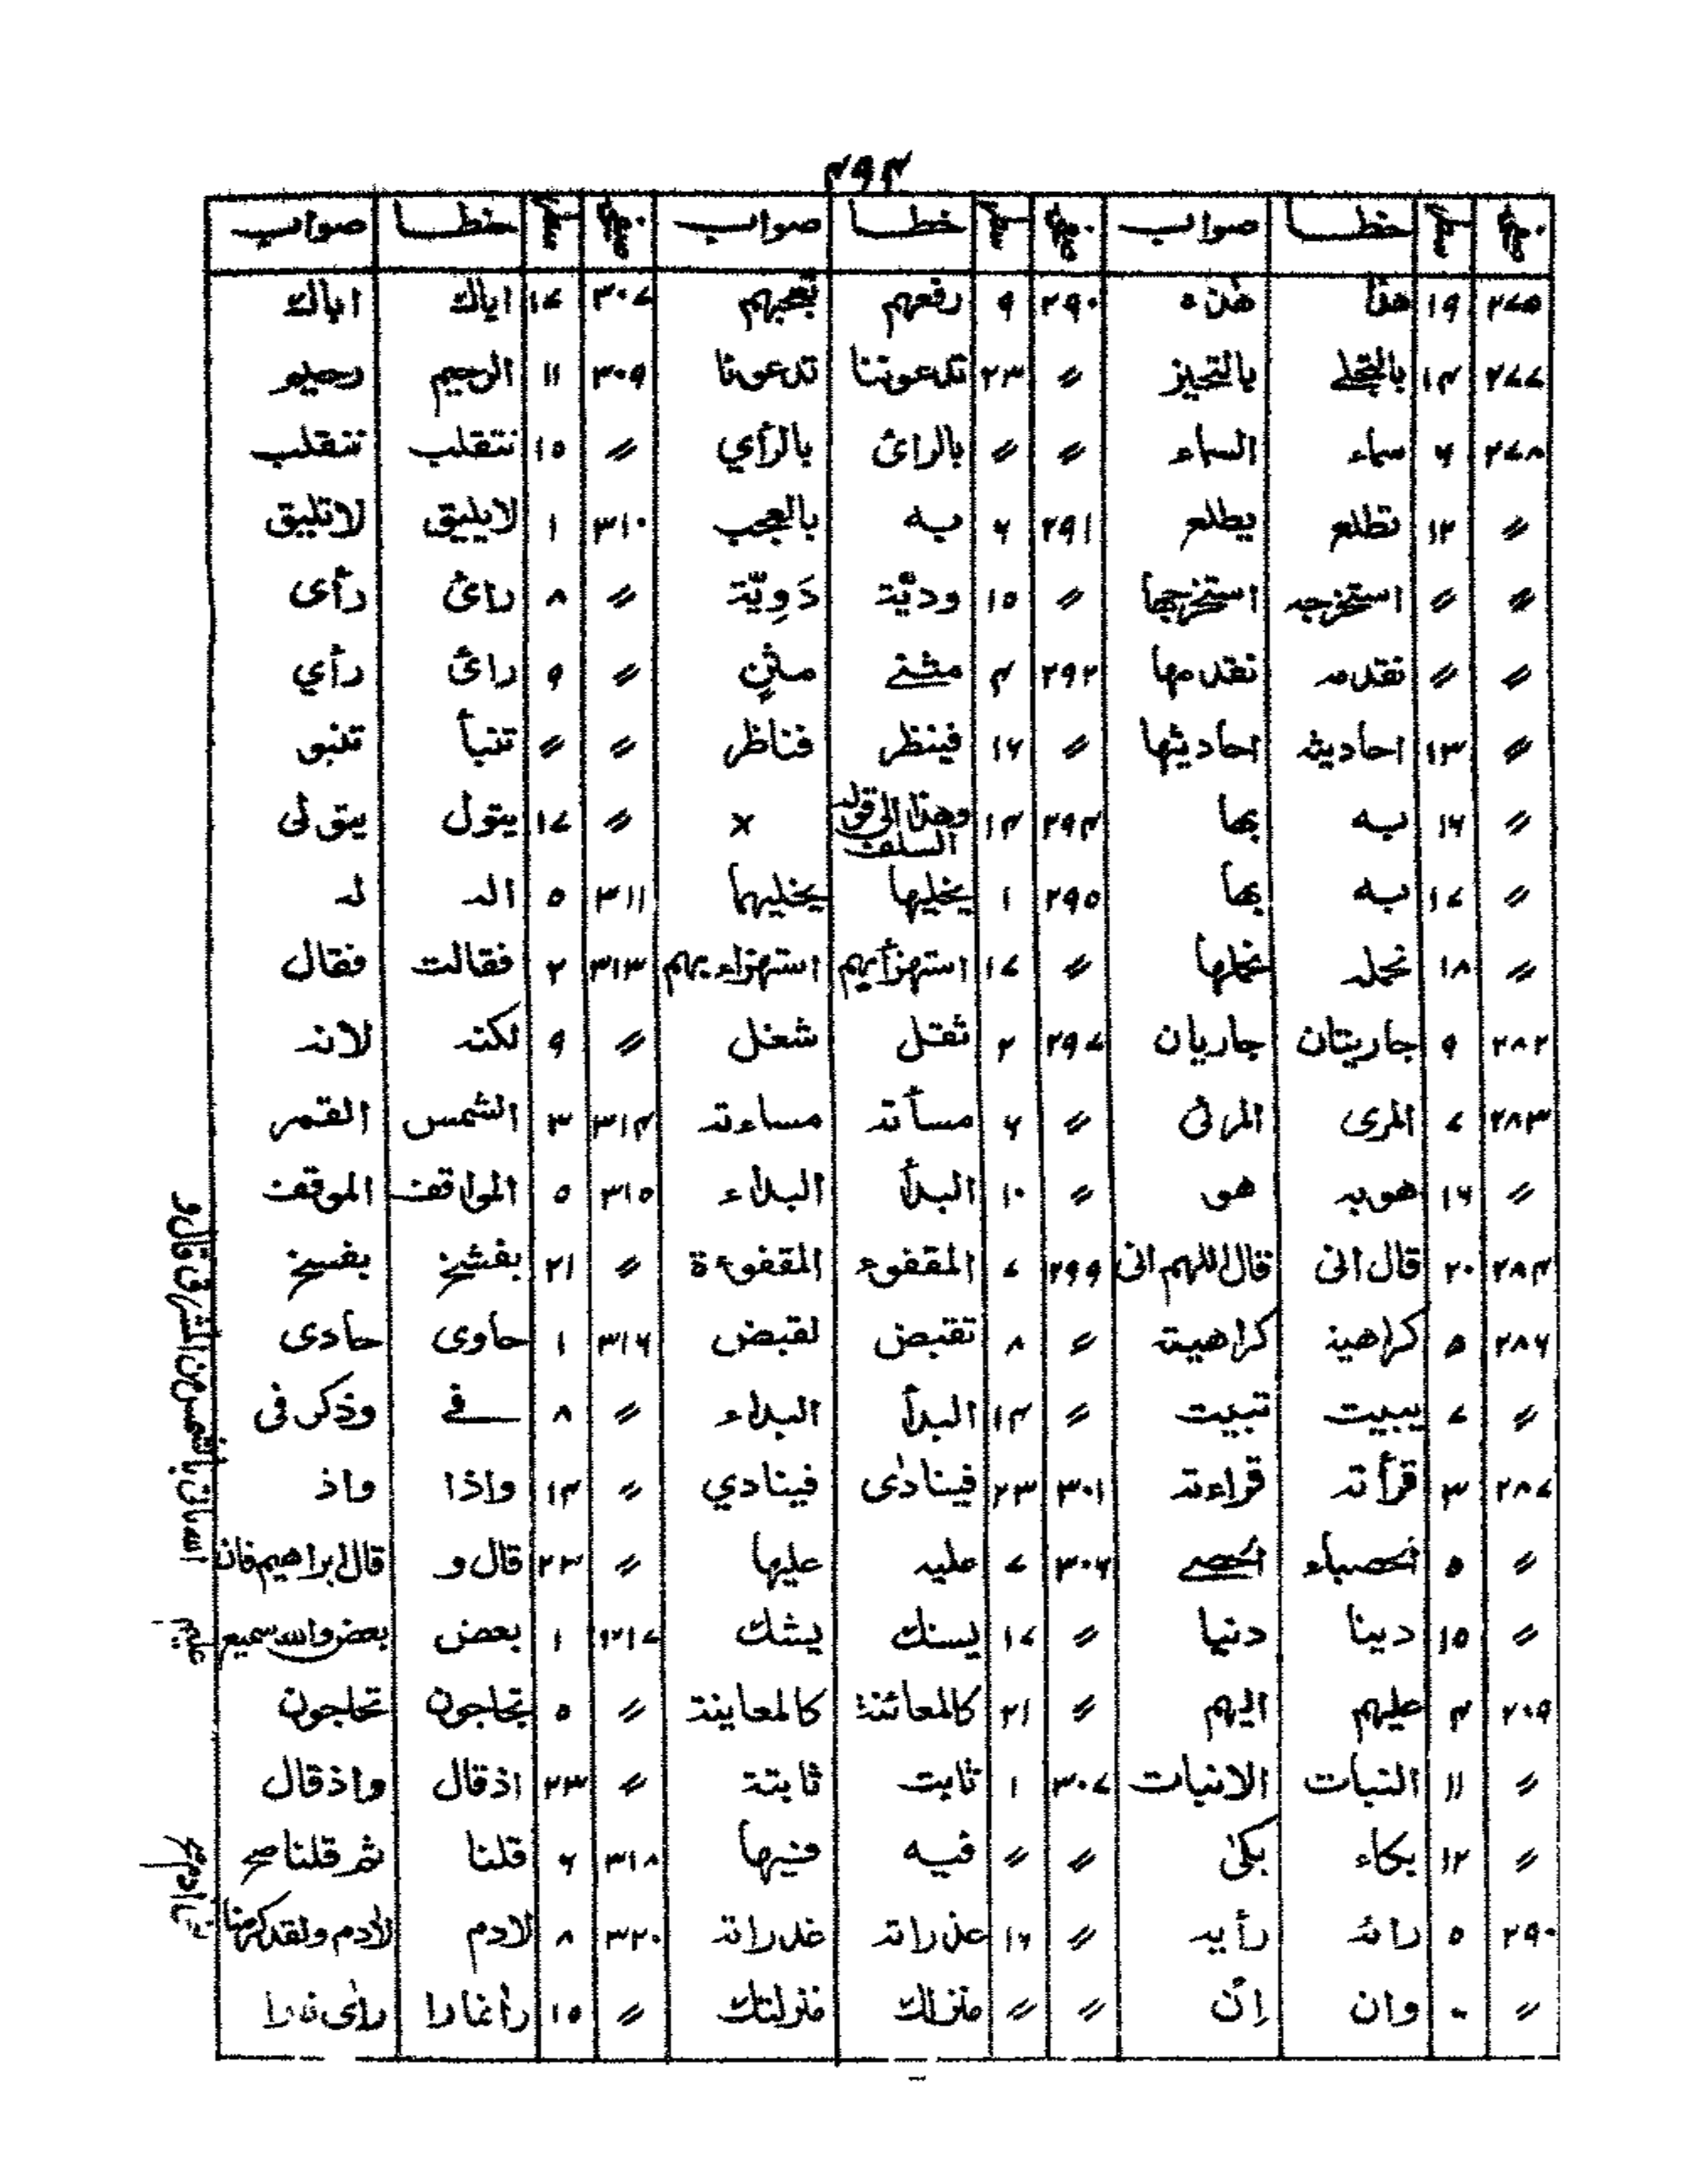 ۴۹۴
صفحہ سطر خطا صواب صفحہ سطر خطا صواب صفحہ سطر خطا صواب
۲۷۵ ۱۹ هذا هذه ۲۹۰ ۹ رفعهم تعجبهم ۳۰۷ ۱۷ اياك اباك
۲۷۷ ۱۴ بالتجلے بالتحيز 〃 ۲۳ تدعوننا تدعونا ۳۰۹ ۱۱ الرحيم رحيم
۲۷۸ ۶ سماء السماء 〃 〃 بالرائ بالرأي 〃 ۱۵ نتقلب ننقلب
〃 ۱۲ تطلع يطلع ۲۹۱ ۶ به بالعجب ۳۱۰ ۱ لايليق لاتليق
〃 〃 استخرجه استخرجها 〃 ۱۵ وديّة دَوِيّة 〃 ۸ رائ رأى
〃 〃 نقدمه نقدمها ۲۹۲ ۴ مثنے مثنٍ 〃 ۹ رائ رأي
〃 ۱۳ احاديثه احاديثها 〃 ۱۶ فينظر فناظر 〃 〃 تنبأ تنبو
〃 ۱۶ به بها ۲۹۴ ۱۴ وهذا الى قوله السلف × 〃 ۱۷ يتول يتولى
〃 ۱۷ به بها ۲۹۵ ۱ يخليها يخليهما ۳۱۱ ۵ اله له
〃 ۱۸ نحمله نحملها 〃 ۱۷ استهزأبهم استهزاء بهم ۳۱۳ ۲ فقالت فقال
۲۸۲ ۹ جاريتان جاريان ۲۹۷ ۲ ثقل شغل 〃 ۹ لكنه لانه
۲۸۳ ۷ المرى المرئى 〃 ۶ مسأته مساءته ۳۱۴ ۳ الشمس القمر
〃 ۱۶ هوبه هو 〃 ۱۰ البدأ البداء ۳۱۵ ۵ المواقف الموقف
۲۸۴ ۲۰ قال انى قال اللهم انى ۲۹۹ ۷ المقفوء المقفوءة 〃 ۲۱ بفشخ بفسخ
۲۸۶ ۵ كراهية كراهيته 〃 ۸ تقبض لقبض ۳۱۶ ۱ حاوى حادى
〃 ۷ يبيت تبيت 〃 ۱۴ البدأ البداء 〃 ۸ فے وذكر فى
۲۸۷ ۳ قرأته قراءته ۳۰۱ ۲۳ فينادى فينادي 〃 ۱۴ واذا واذ
〃 ۵ الحصباء الحصے ۳۰۶ ۷ عليه عليها 〃 ۲۳ قال و قال ابراهيم فان
〃 ۱۵ دينا دنيا 〃 ۱۷ يسنك يشك ۳۱۷ ۱ بعض بعض والله سميع
۲۰۹ ۴ عليهم اليهم 〃 ۲۱ كالمعائنة كالمعاينة 〃 ۵ تجاجون تحاجون
〃 ۱۱ النبات الانبات ۳۰۷ ۱ ثابت ثابتة 〃 ۲۳ اذ قال واذ قال
〃 ۱۲ بكاء بكى 〃 〃 فيه فيها ۳۱۸ ۶ قلنا ثم قلنا صح
۲۹۰ ۵ رائه رأيه 〃 ۱۶ عذراته غدراته ۳۲۰ ۸ لادم لأدم ولقد كرمنا
〃 وان اِنّ 〃 〃 منزلك منزلتك 〃 ۱۵ رأنارا رأى نارا
الله ياتى بالشمس من المشرق قال و
عليم